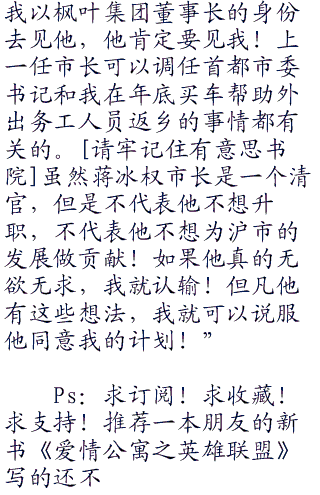 我以枫叶集团董事长的身份
去见他，他肯定要见我！上
一任市长可以调任首都市委
书记和我在年底买车帮助外
出务工人员返乡的事情都有
关的。[请牢记住有意思书
院]虽然蒋冰权市长是一个清
官，但是不代表他不想升
职，不代表他不想为沪市的
发展做贡献！如果他真的无
欲无求，我就认输！但凡他
有这些想法，我就可以说服
他同意我的计划！”
Ps：求订阅！求收藏！
求支持！推荐一本朋友的新
书《爱情公寓之英雄联盟》
写的还不